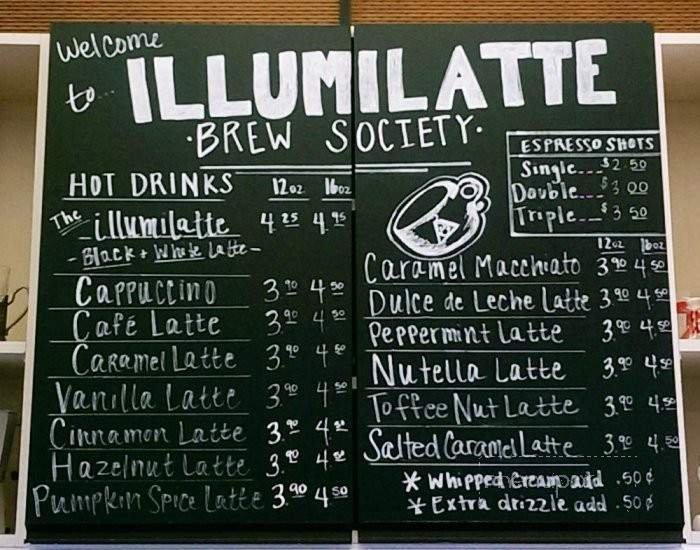 Welcome
to...
ILLUMILATTE
·BREW SOCIETY·
HOT DRINKS 12oz 16oz
The illumilatte 4.25 4.95
- Black + White Latte -
Cappuccino 3.90 4.50
Café Latte 3.90 4.50
Caramel Latte 3.90 4.50
Vanilla Latte 3.90 4.50
Cinnamon Latte 3.90 4.50
Hazelnut Latte 3.90 4.50
Pumpkin Spice Latte 3.90 4.50
ESPRESSO SHOTS
Single...$2.50
Double...$3.00
Triple...$3.50
12oz 16oz
Caramel Macchiato 3.90 4.50
Dulce de Leche Latte 3.90 4.50
Peppermint Latte 3.90 4.50
Nutella Latte 3.90 4.50
Toffee Nut Latte 3.90 4.50
Salted Caramel Latte 3.90 4.50
* Whipped Cream add .50¢
* Extra drizzle add .50¢